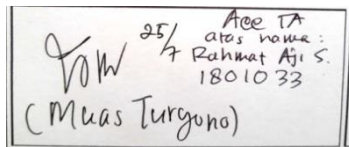 25/7
Acc TA
atas nama :
Rahmat Aji S.
1801033
(Muas Turyono)